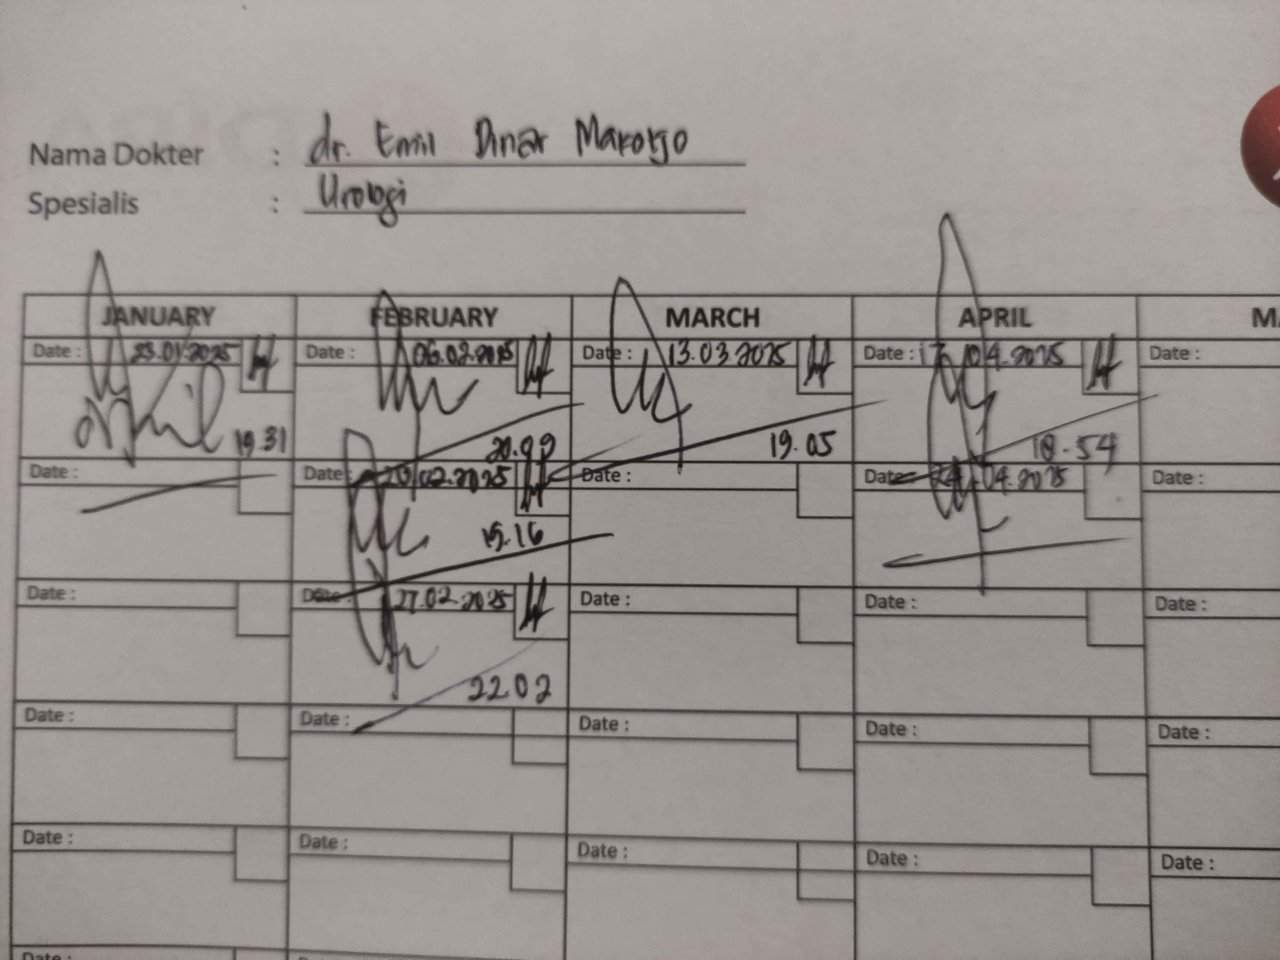 Nama Dokter : dr. Emil Dinar Makotjo
Spesialis : Urologi
JANUARY FEBRUARY MARCH APRIL
Date : 23.01.2025 Date : 06.02.2025 Date : 13.03.2025 Date : 17.04.2025 Date :
19.31 20.99 19.05 18.54
Date : Date : 20.02.2025 Date : Date : 24.04.2025 Date :
19.16
Date : Date : 27.02.2025 Date : Date : Date :
22.02
Date : Date : Date : Date : Date :
Date : Date : Date : Date : Date :